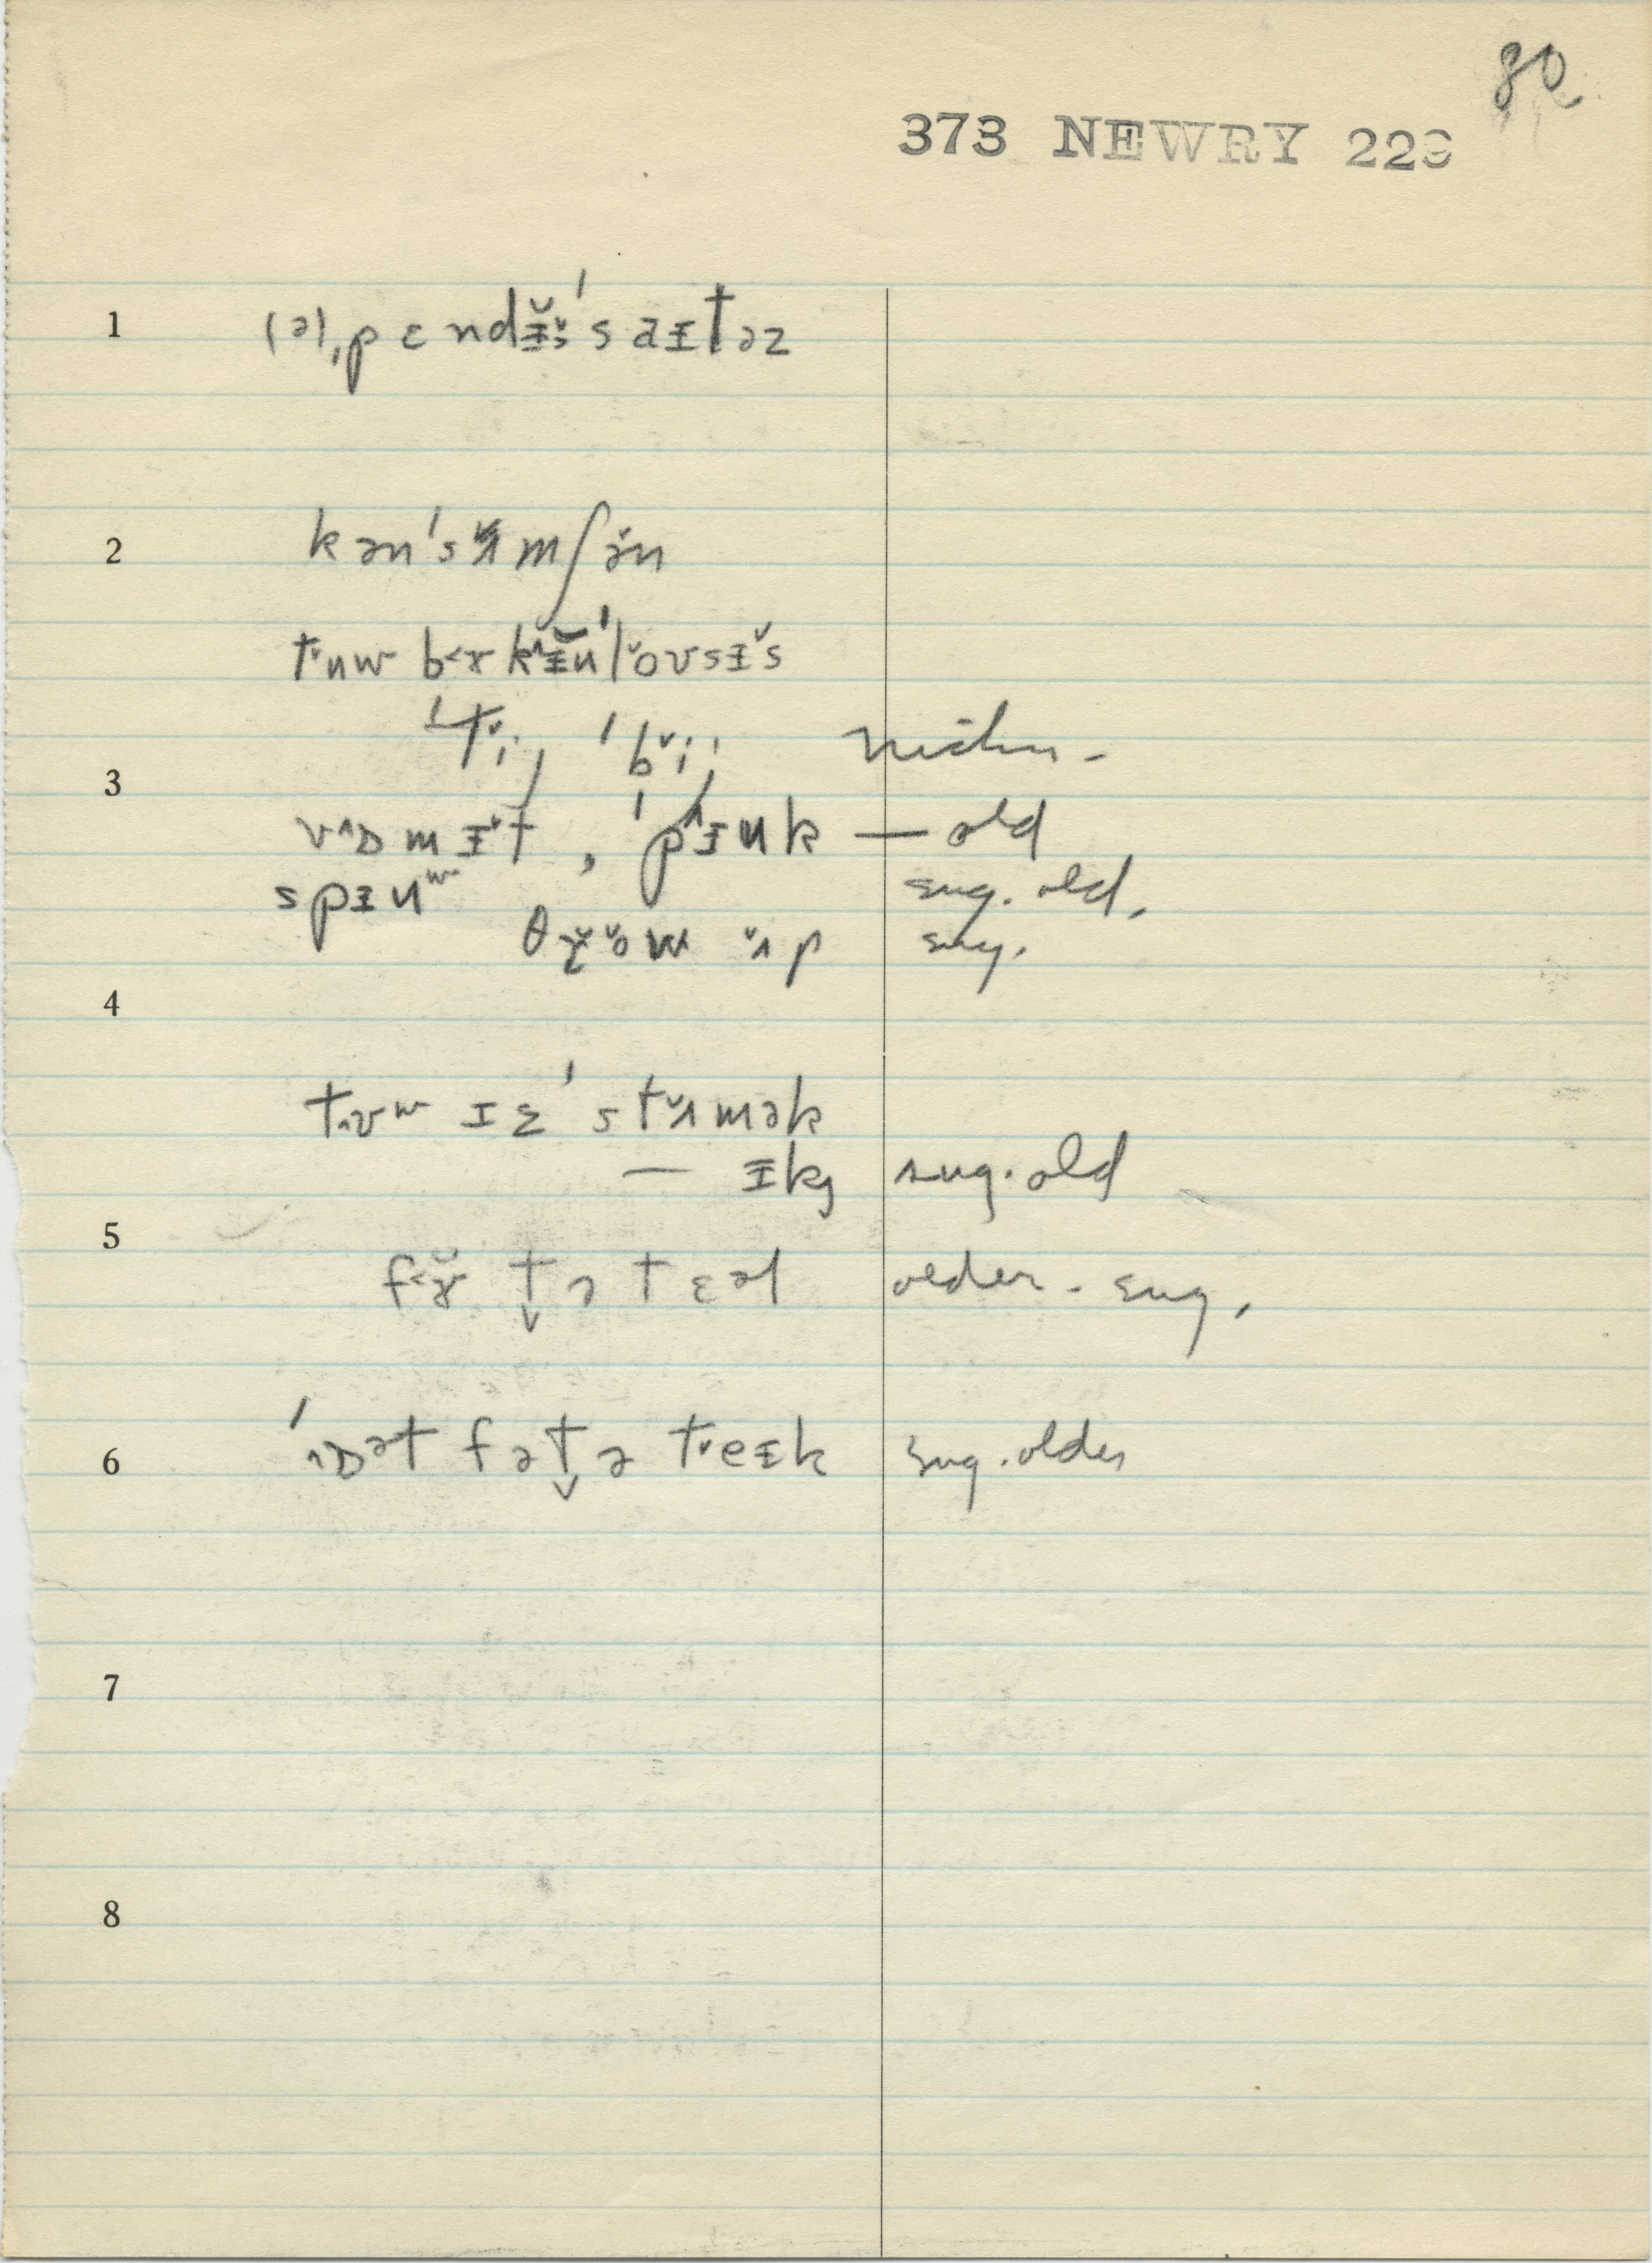 80
373 NEWRY 223
1 (ə)ˌpɛndɪ̵̆s̆ˈsaɪ̵təz
2 kənˈsʌ̆mʃə̆n
tʉw bɚkɪ̵̆uˈlŏʊsɪ̵̆s
ˈtiː, ˈbiː,
3 vɒmɪ̵t, ˈpɪ̵uk — old
spɪ̵uʷ sug. old.
θɤ̆ŏw ʌ̆p sug.
4
tʊʷ ɪɛ ˈstʌ̆mək
— ɪ̵k, sug. old
5
fɚ̆ tə tɛəl older - sug.
6 ˈɒət fə tə treɪ̵k sug. older
7
8